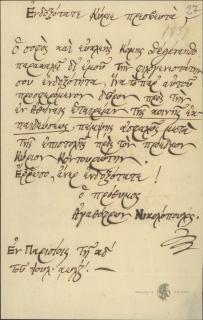 Ἐνδοξότατε Κύριε πρεσβευτά
27
Ὁ σοφὸς καὶ εὐγενὴς Κόμης
παρακαλεῖ δι' ἐμοῦ τὴν
σου ἐνδοξότητα, ἵνα τὸ παρ' αὐτοῦ
προσφερόμενον δῶρον πρὸς τὴν
ἐν Ἀθήναις Ἑταιρείαν τῆς κοινῆς ἐκ-
παιδεύσεως πέμψῃς ἀσφαλῶς μετὰ
τῆς ἐπιστολῆς πρὸς τὸν πρόεδρον
Κύριον
Ἔρρωσο, ἄνερ ἐνδοξότατε!
ὁ πρόθυμος
Ἀγαθόφρων Νικολόπουλος.
Ἐν Παρισίοις τῇ
τοῦ Ἰουλ.